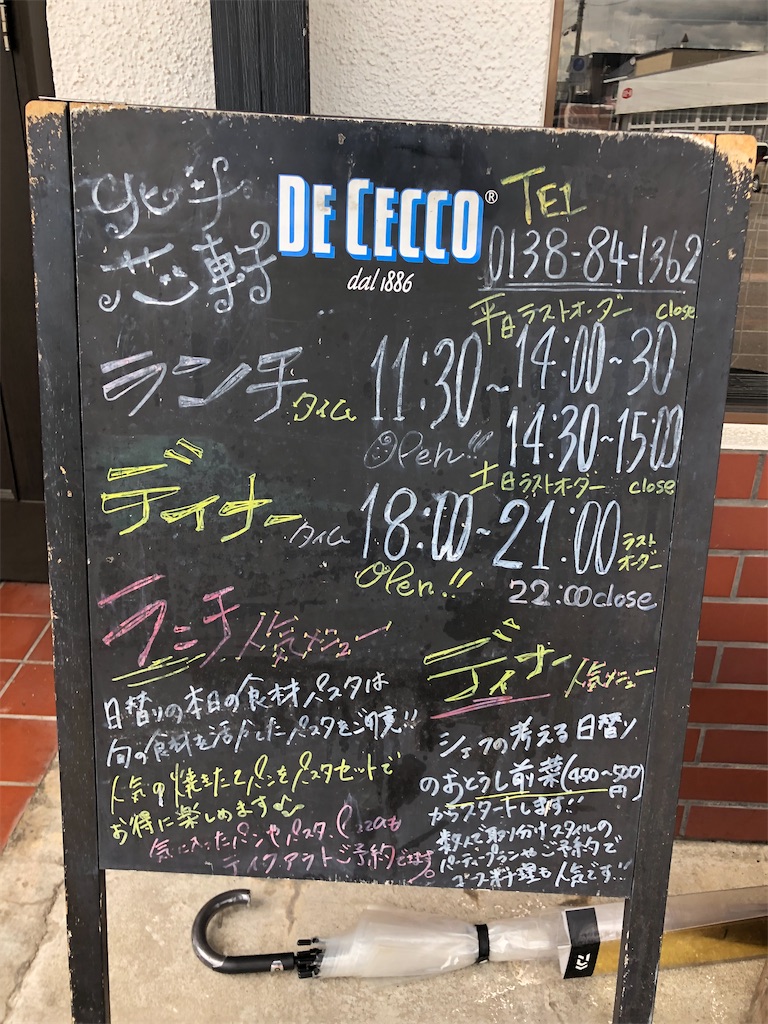 DE CECCO®
dal 1886
TEL
0138-84-1362
芯軒
平日ラストオーダー close
ランチタイム 11:30～14:00～30
Open!! 14:30～15:00
土日ラストオーダー close
ディナータイム 18:00～21:00 ラストオーダー
Open!! 22:00close
ランチ人気メニュー
日替りの本日の食材パスタは
旬の食材を活かしたパスタをご用意!!
人気の焼きたてパンをパスタセットで
お得に楽しめます♪
気に入ったパンやパスタ、Pizzaも
テイクアウトご予約できます。
ディナー人気メニュー
シェフの考える日替り
のおとうし前菜(450～500円)
からスタートします!!
数人で取り分けスタイルの
パーティープランやご予約で
コース料理も人気です!!